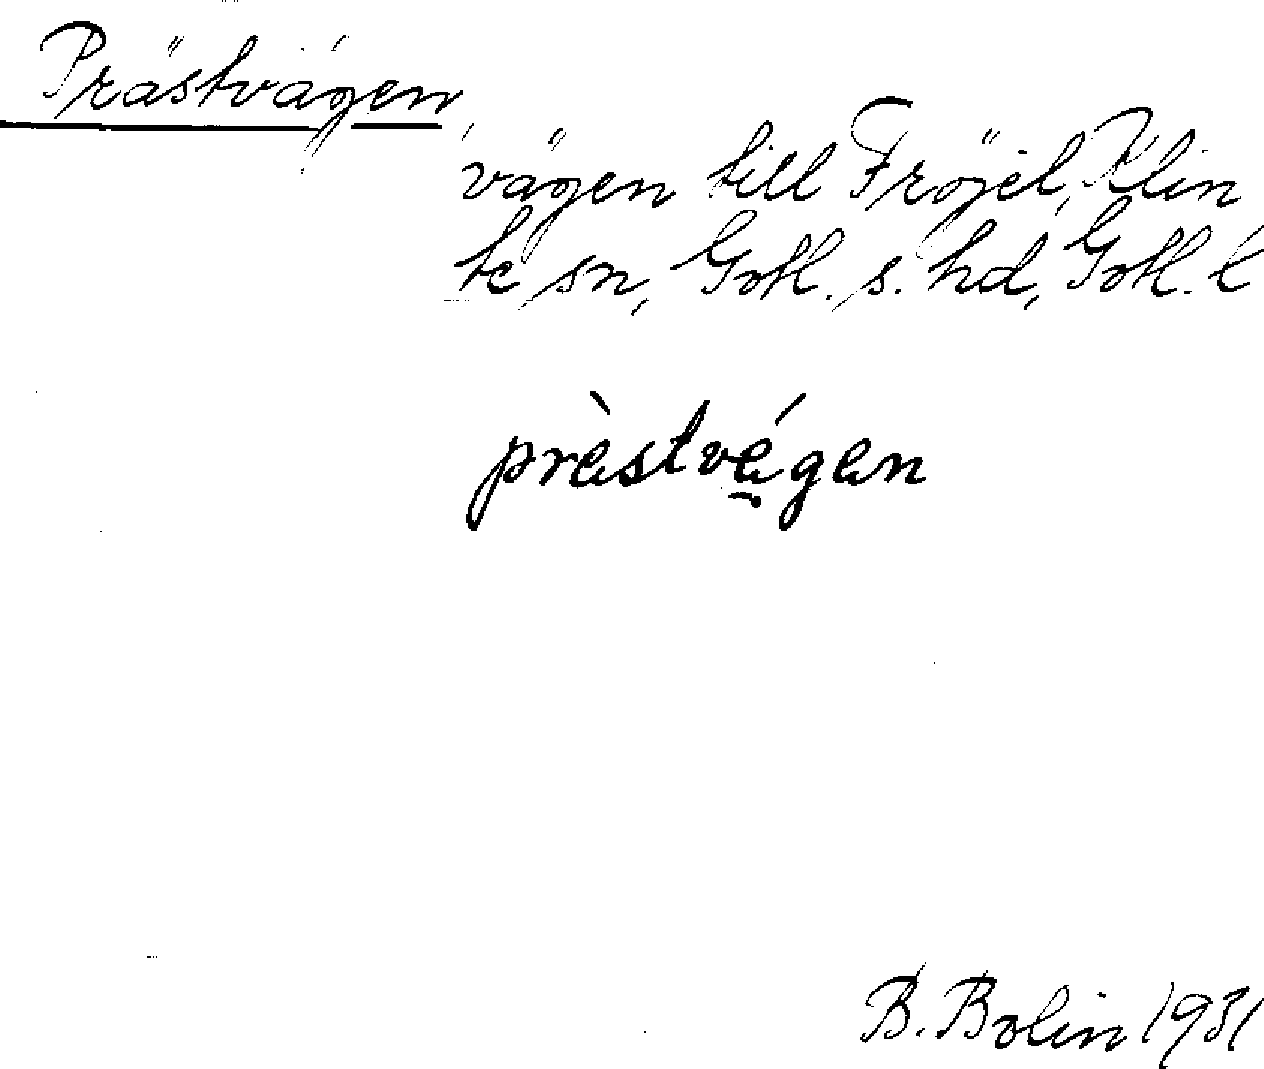 Prästvägen,
vägen till Fröjel, Klin
te sn, Gotl. s. hd, Gotl. l
prèstvé̱gen
B. Bolin 1931